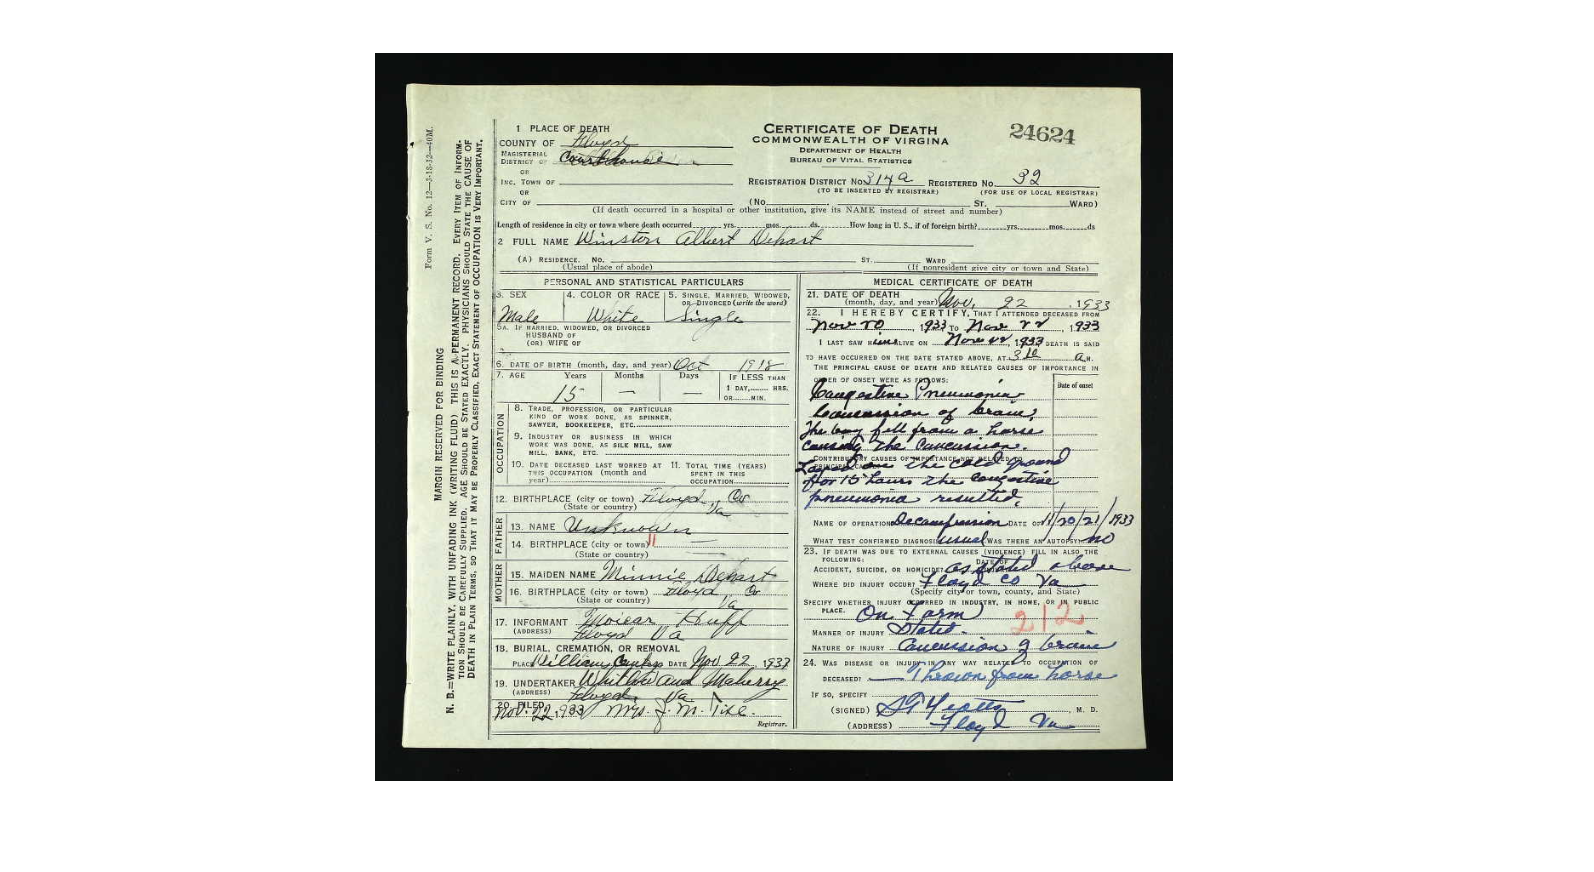 1 PLACE OF DEATH
COUNTY OF Floyd
MAGISTERIAL DISTRICT OF Courthouse
OR
INC. TOWN OF
OR
CITY OF
CERTIFICATE OF DEATH
COMMONWEALTH OF VIRGINIA
DEPARTMENT OF HEALTH
BUREAU OF VITAL STATISTICS
24624
REGISTRATION DISTRICT No. 314a REGISTERED No. 32
(TO BE INSERTED BY REGISTRAR) (FOR USE OF LOCAL REGISTRAR)
(No. ST. WARD)
(If death occurred in a hospital or other institution, give its NAME instead of street and number)
Length of residence in city or town where death occurred yrs. mos. ds. How long in U. S., if of foreign birth? yrs. mos. ds
2 FULL NAME Winston Albert Dehart
(A) RESIDENCE. No. ST. WARD
(Usual place of abode) (If nonresident give city or town and State)
PERSONAL AND STATISTICAL PARTICULARS
3. SEX Male
4. COLOR OR RACE White
5. SINGLE, MARRIED, WIDOWED, OR DIVORCED (write the word) Single
5A. IF MARRIED, WIDOWED, OR DIVORCED
HUSBAND OF
(OR) WIFE OF
6. DATE OF BIRTH (month, day, and year) Oct 1918
7. AGE Years 15 Months — Days — IF LESS THAN 1 DAY, HRS. OR MIN.
OCCUPATION
8. TRADE, PROFESSION, OR PARTICULAR
KIND OF WORK DONE, AS SPINNER,
SAWYER, BOOKKEEPER, ETC.
9. INDUSTRY OR BUSINESS IN WHICH
WORK WAS DONE, AS SILK MILL, SAW
MILL, BANK, ETC.
10. DATE DECEASED LAST WORKED AT THIS OCCUPATION (month and year)
11. TOTAL TIME (YEARS) SPENT IN THIS OCCUPATION
12. BIRTHPLACE (city or town) Floyd Co
(State or country) Va
FATHER
13. NAME Unknown
14. BIRTHPLACE (city or town)
(State or country)
MOTHER
15. MAIDEN NAME Minnie Dehart
16. BIRTHPLACE (city or town) Floyd Co
(State or country) Va
17. INFORMANT Huff
(ADDRESS) Floyd Va
18. BURIAL, CREMATION, OR REMOVAL
PLACE DATE Nov 22, 1933
19. UNDERTAKER and
(ADDRESS) Floyd Va
20. FILED Nov. 22, 1933 Mrs. J. M.
Registrar.
MEDICAL CERTIFICATE OF DEATH
21. DATE OF DEATH
(month, day, and year) Nov. 22, 1933
22. I HEREBY CERTIFY, THAT I ATTENDED DECEASED FROM
Nov 20, 1933 TO Nov 22, 1933
I LAST SAW H im ALIVE ON Nov 22, 1933 DEATH IS SAID
TO HAVE OCCURRED ON THE DATE STATED ABOVE, AT a M.
THE PRINCIPAL CAUSE OF DEATH AND RELATED CAUSES OF IMPORTANCE IN
ORDER OF ONSET WERE AS FOLLOWS: Date of onset
Congestive Pneumonia
Concussion of brain.
The boy fell from a horse
causing the Concussion.
CONTRIBUTORY CAUSES OF IMPORTANCE NOT RELATED TO
PRINCIPAL CAUSE:
on the cold ground
for 15 hours The congestive
pneumonia resulted.
NAME OF OPERATION Decompression DATE OF 11/20/21/1933
WHAT TEST CONFIRMED DIAGNOSIS usual WAS THERE AN AUTOPSY? no
23. IF DEATH WAS DUE TO EXTERNAL CAUSES (VIOLENCE) FILL IN ALSO THE
FOLLOWING: DATE OF
ACCIDENT, SUICIDE, OR HOMICIDE? as stated above
WHERE DID INJURY OCCUR? Floyd Co Va
(Specify city or town, county, and State)
SPECIFY WHETHER INJURY OCCURRED IN INDUSTRY, IN HOME, OR IN PUBLIC
PLACE. On Farm
212
MANNER OF INJURY Stated.
NATURE OF INJURY Concussion of brain
24. WAS DISEASE OR INJURY IN ANY WAY RELATED TO OCCUPATION OF
DECEASED? Thrown from horse
IF SO, SPECIFY
(SIGNED) M. D.
(ADDRESS) Floyd Va
Form V. S. No. 12—3-18-32—40M.
MARGIN RESERVED FOR BINDING
N. B.—WRITE PLAINLY, WITH UNFADING INK (WRITING FLUID) THIS IS A PERMANENT RECORD. EVERY ITEM OF INFORM-
TION SHOULD BE CAREFULLY SUPPLIED. AGE SHOULD BE STATED EXACTLY. PHYSICIANS SHOULD STATE THE CAUSE OF
DEATH IN PLAIN TERMS, SO THAT IT MAY BE PROPERLY CLASSIFIED. EXACT STATEMENT OF OCCUPATION IS VERY IMPORTANT.